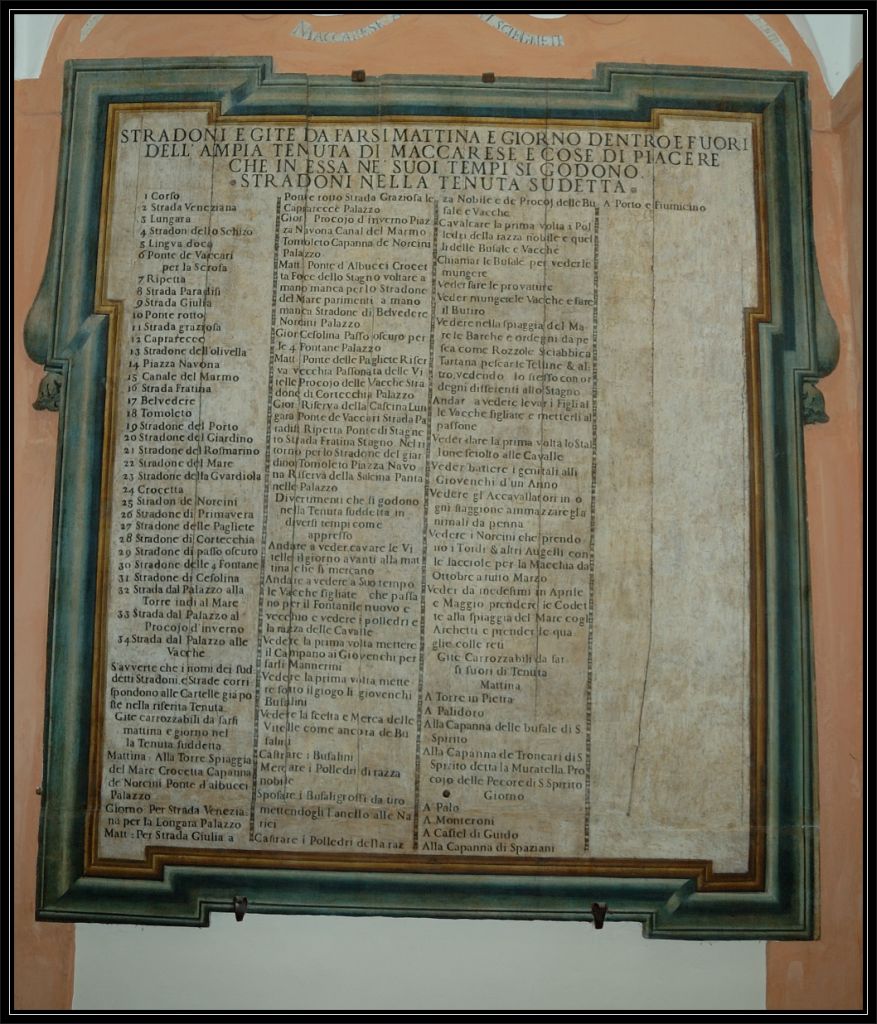 MACCARESE
STRADONI E GITE DA FARSI MATTINA E GIORNO DENTRO E FUORI
DELL'AMPIA TENUTA DI MACCARESE E COSE DI PIACERE
CHE IN ESSA NE' SUOI TEMPI SI GODONO.
STRADONI NELLA TENUTA SUDETTA
1 Corso
2 Strada Veneziana
3 Lungara
4 Stradon dello Schizo
5 Lingva d'oca
6 Ponte de Vaccari
per la Scrofa
7 Ripetta
8 Strada Paradisi
9 Strada Giulia
10 Ponte rotto
11 Strada graziosa
12 Caprarecce
13 Stradone dell'olivella
14 Piazza Navona
15 Canale del Marmo
16 Strada Fratina
17 Belvedere
18 Tomoleto
19 Stradone del Porto
20 Stradone del Giardino
21 Stradone del Rosmarino
22 Stradone del Mare
23 Stradone della Gvardiola
24 Crocetta
25 Stradon de Norcini
26 Stradone di Primavera
27 Stradone delle Pagliete
28 Stradone di Cortecchia
29 Stradone di passo oscuro
30 Stradone delle 4 Fontane
31 Stradone di Cesolina
32 Strada dal Palazzo alla
Torre indi al Mare
33 Strada dal Palazzo al
Procojo d'inverno
34 Strada dal Palazzo alle
Vacche
S'avverte che i nomi dei sud
detti Stradoni e Strade corri
spondono alle Cartelle già po
ste nella riferita Tenuta
Gite carrozzabili da farsi
mattina e giorno nel
la Tenuta suddetta
Mattina: Alla Torre Spiaggia
del Mare Crocetta Capanna
de Norcini Ponte d'albucci
Palazzo
Giorno Per Strada Venezia
na per la Longara Palazzo
Matt: Per Strada Giulia a
Ponte rotto Strada Graziosa le
Caprarecce Palazzo
Gior: Procojo d'inverno Piaz
za Navona Canal del Marmo
Tomoleto Capanna de Norcini
Palazzo
Matt: Ponte d'Albucci Crocet
ta Foce dello Stagno voltare a
mano manca per lo Stradone
del Mare parimenti a mano
manca Stradone di Belvedere
Norcini Palazzo
Gior Cesolina Passo oscuro per
le 4 Fontane Palazzo
Matt: Ponte delle Pagliete Riser
va vecchia Passonata delle Vi
telle Procojo delle Vacche Stra
done di Cortecchia Palazzo
Gior: Riserva della Cascina Lun
gara Ponte de Vaccari Strada Pa
radisi Ripetta Ponte di Stagne
to Strada Fratina Stagno. Nel ri
torno per lo Stradone del giar
dino Tomoleto Piazza Navo
na Riserva della Saccina Panta
nelle Palazzo
Divertimenti che si godono
nella Tenuta suddetta in
diversi tempi come
appresso
Andare a veder cavare le Vi
telle il giorno avanti alla mat
tina che si mercano
Andare a vedere a Suo tempo
le Vacche figliate che passa
no per il Fontanile nuovo e
vecchio e vedere i polledri e
la razza delle Cavalle
Vedere la prima volta mettere
il Campano ai Giovenchi per
farli Mannerini
Vedere la prima volta mette
re sotto il giogo li giovenchi
Bufalini
Vedere la scelta e Merca delle
Vitelle come ancora de Bu
falini
Castrare i Bufalini
Mercare i Polledri di razza
nobile
Sposare i Bufali grossi da tiro
mettendogli l'anello alle Na
rici
Castrare i Polledri della raz
za Nobile e de Procoj delle Bu
fale e Vacche
Cavalcare la prima volta i Pol
ledri della razza nobile e quel
li delle Bufale e Vacche
Chiamar le Bufale per vederle
mungere
Veder fare le provature
Veder mungere le Vacche e fare
il Butiro
Vedere nella spiaggia del Ma
re le Barche e ordegni da pe
sca come Rozzole Sciabbica
Tartana pescar te Telline & al
tro, vedendo lo stesso con or
degni differenti allo Stagno
Andar a vedere levar i Figli al
le Vacche figliate e metterli al
passone
Veder dare la prima volta lo Stal
lone sciolto alle Cavalle
Veder battere i genitali alli
Giovenchi d'un Anno
Vedere gl'Accavallatori in o
gni staggione ammazzare gl'a
nimali da penna
Vedere i Norcini che prendo
no i Tordi & altri Augelli con
le Jacciole per la Macchia da
Ottobre a tutto Marzo
Veder da medesimi in Aprile
e Maggio prendere le Codet
te alla spiaggia del Mare cogl
Archetti e prender le qua
glie colle reti
Gite Carrozzabili da far
si fuori di Tenuta
Mattina
A Torre in Pietra
A Palidoro
Alla Capanna delle bufale di S.
Spirito
Alla Capanna de Troncari di S
Spirito detta la Muratella Pro
cojo delle Pecore di S Spirito
Giorno
A Palo
A Monteroni
A Castel di Guido
Alla Capanna di Spaziani
A Porto e fiumicino